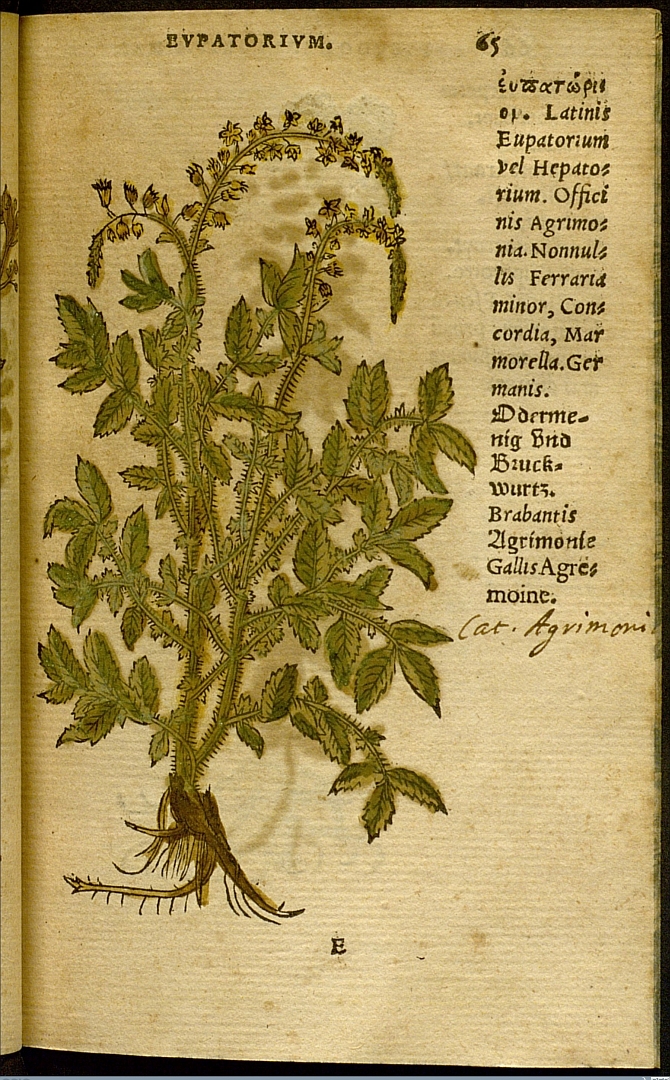 EVPATORIVM.
65
ἐυπατώρι
ον. Latinis
Eupatorium
vel Hepato⸗
rium. Offici
nis Agrimo⸗
nia. Nonnul⸗
lis Ferraria
minor, Con⸗
cordia, Mar
morella. Ger
manis.
Odermе⸗
nig vnd
Bruck⸗
wurtz.
Brabantis
Agrimonie
Gallis Agre⸗
moine.
Cat. Agrimoni
E